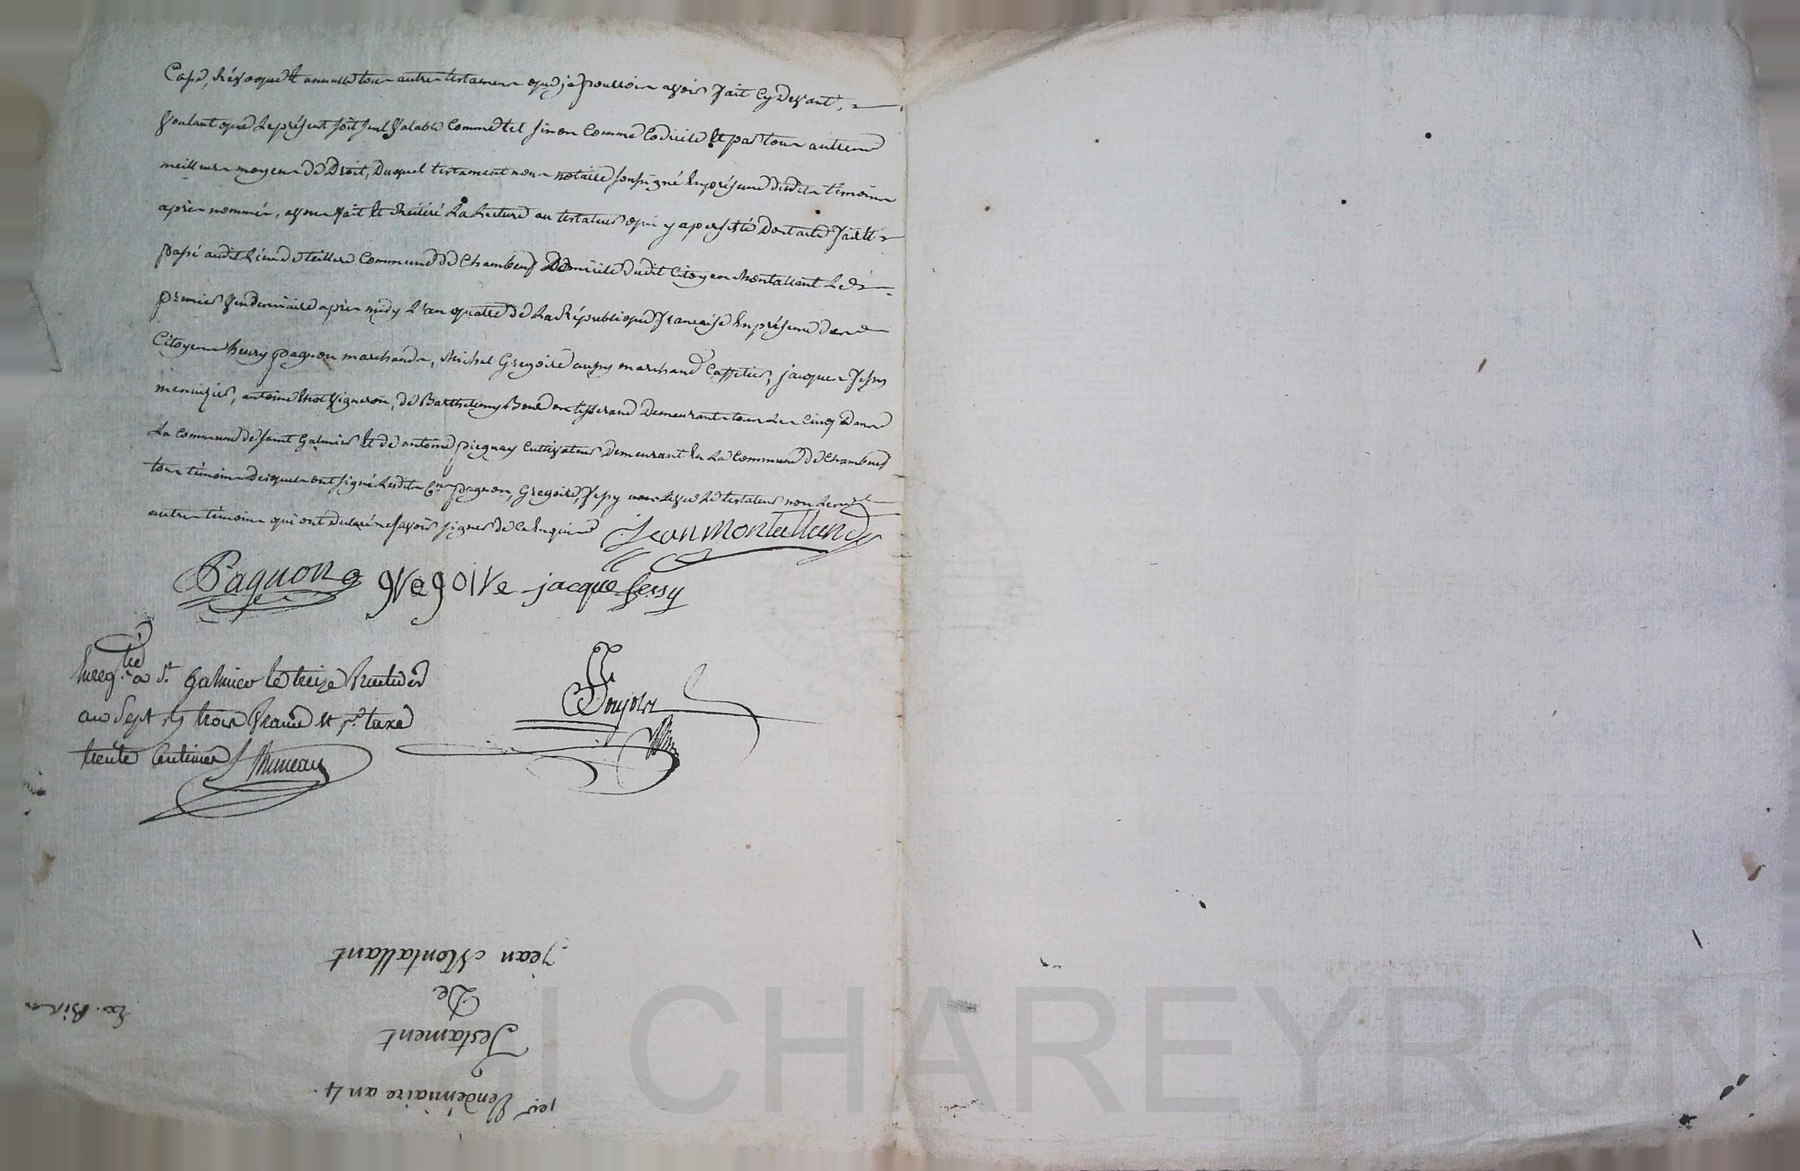 Casse, Révoque et annulle tous autres testamens que je pourrois avoir fait Cy Devant,
Voulant que Le présent soit seul Valable Comme tel sinon Comme Codicile Et par tous autres
meilleurs moyens de Droit, Duquel testament nous notaire soussigné En présence desdits témoins
après nommés, avons fait Et Réitéré La Lecture au testateur qui y a persisté Dont acte fait et
passé audit Lieu de Commune de Chambeuf Domicile dudit Citoyen Montallant Le
premier Vendemiaire après midy L'an quatre de La République francaise En présence des
Citoyens henry pagnon marchand, Michel Gregoire marchand Caffetier, jacques fessy
menuizier, antoine Vigneron, de Barthelemy tisserand Demeurants tous Les Cinq dans
La Commune de saint Galmier Et de antoine Cultivateur Demeurant En La Commune de Chambeuf
tous témoins desquels ont signé Lesdits Cns pagnon, Gregoire, fessy avec Le testateur non Les
autres témoins qui ont déclaré ne savoir signer de ce Enquis
Jean montalland
Pagnon gregoire jacque fessy
Enregtré a St Galmier le treize
an Sept, trois francs et taxe
trente Centimes
Jean Montallant
De
Testament
1er Vendémiaire an 4.
CHAREYRON